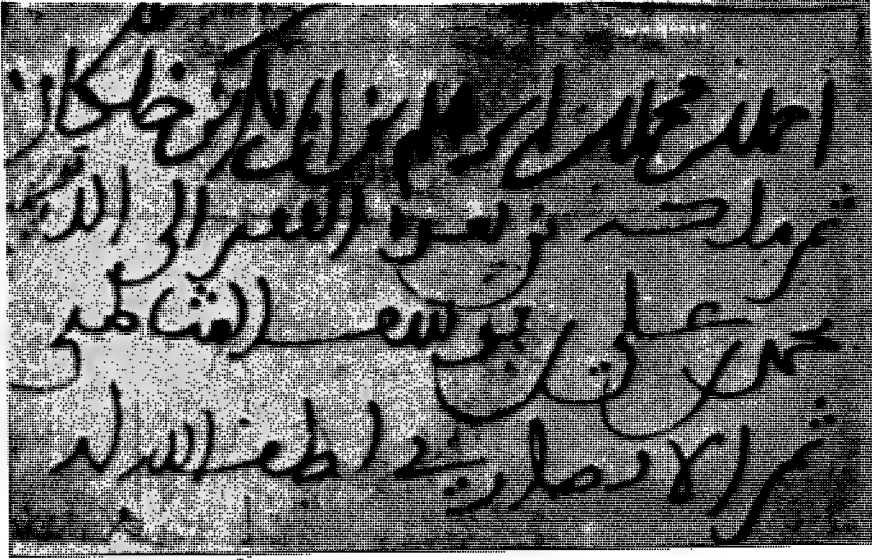 احمد بن محمد بن ابراهيم بن ابي بكر بن خلكان
ثم ملكه من بعده الفقير الى الله
محمد بن علي بن يوسف الشاطبي
ثم الانصاري لطف الله له